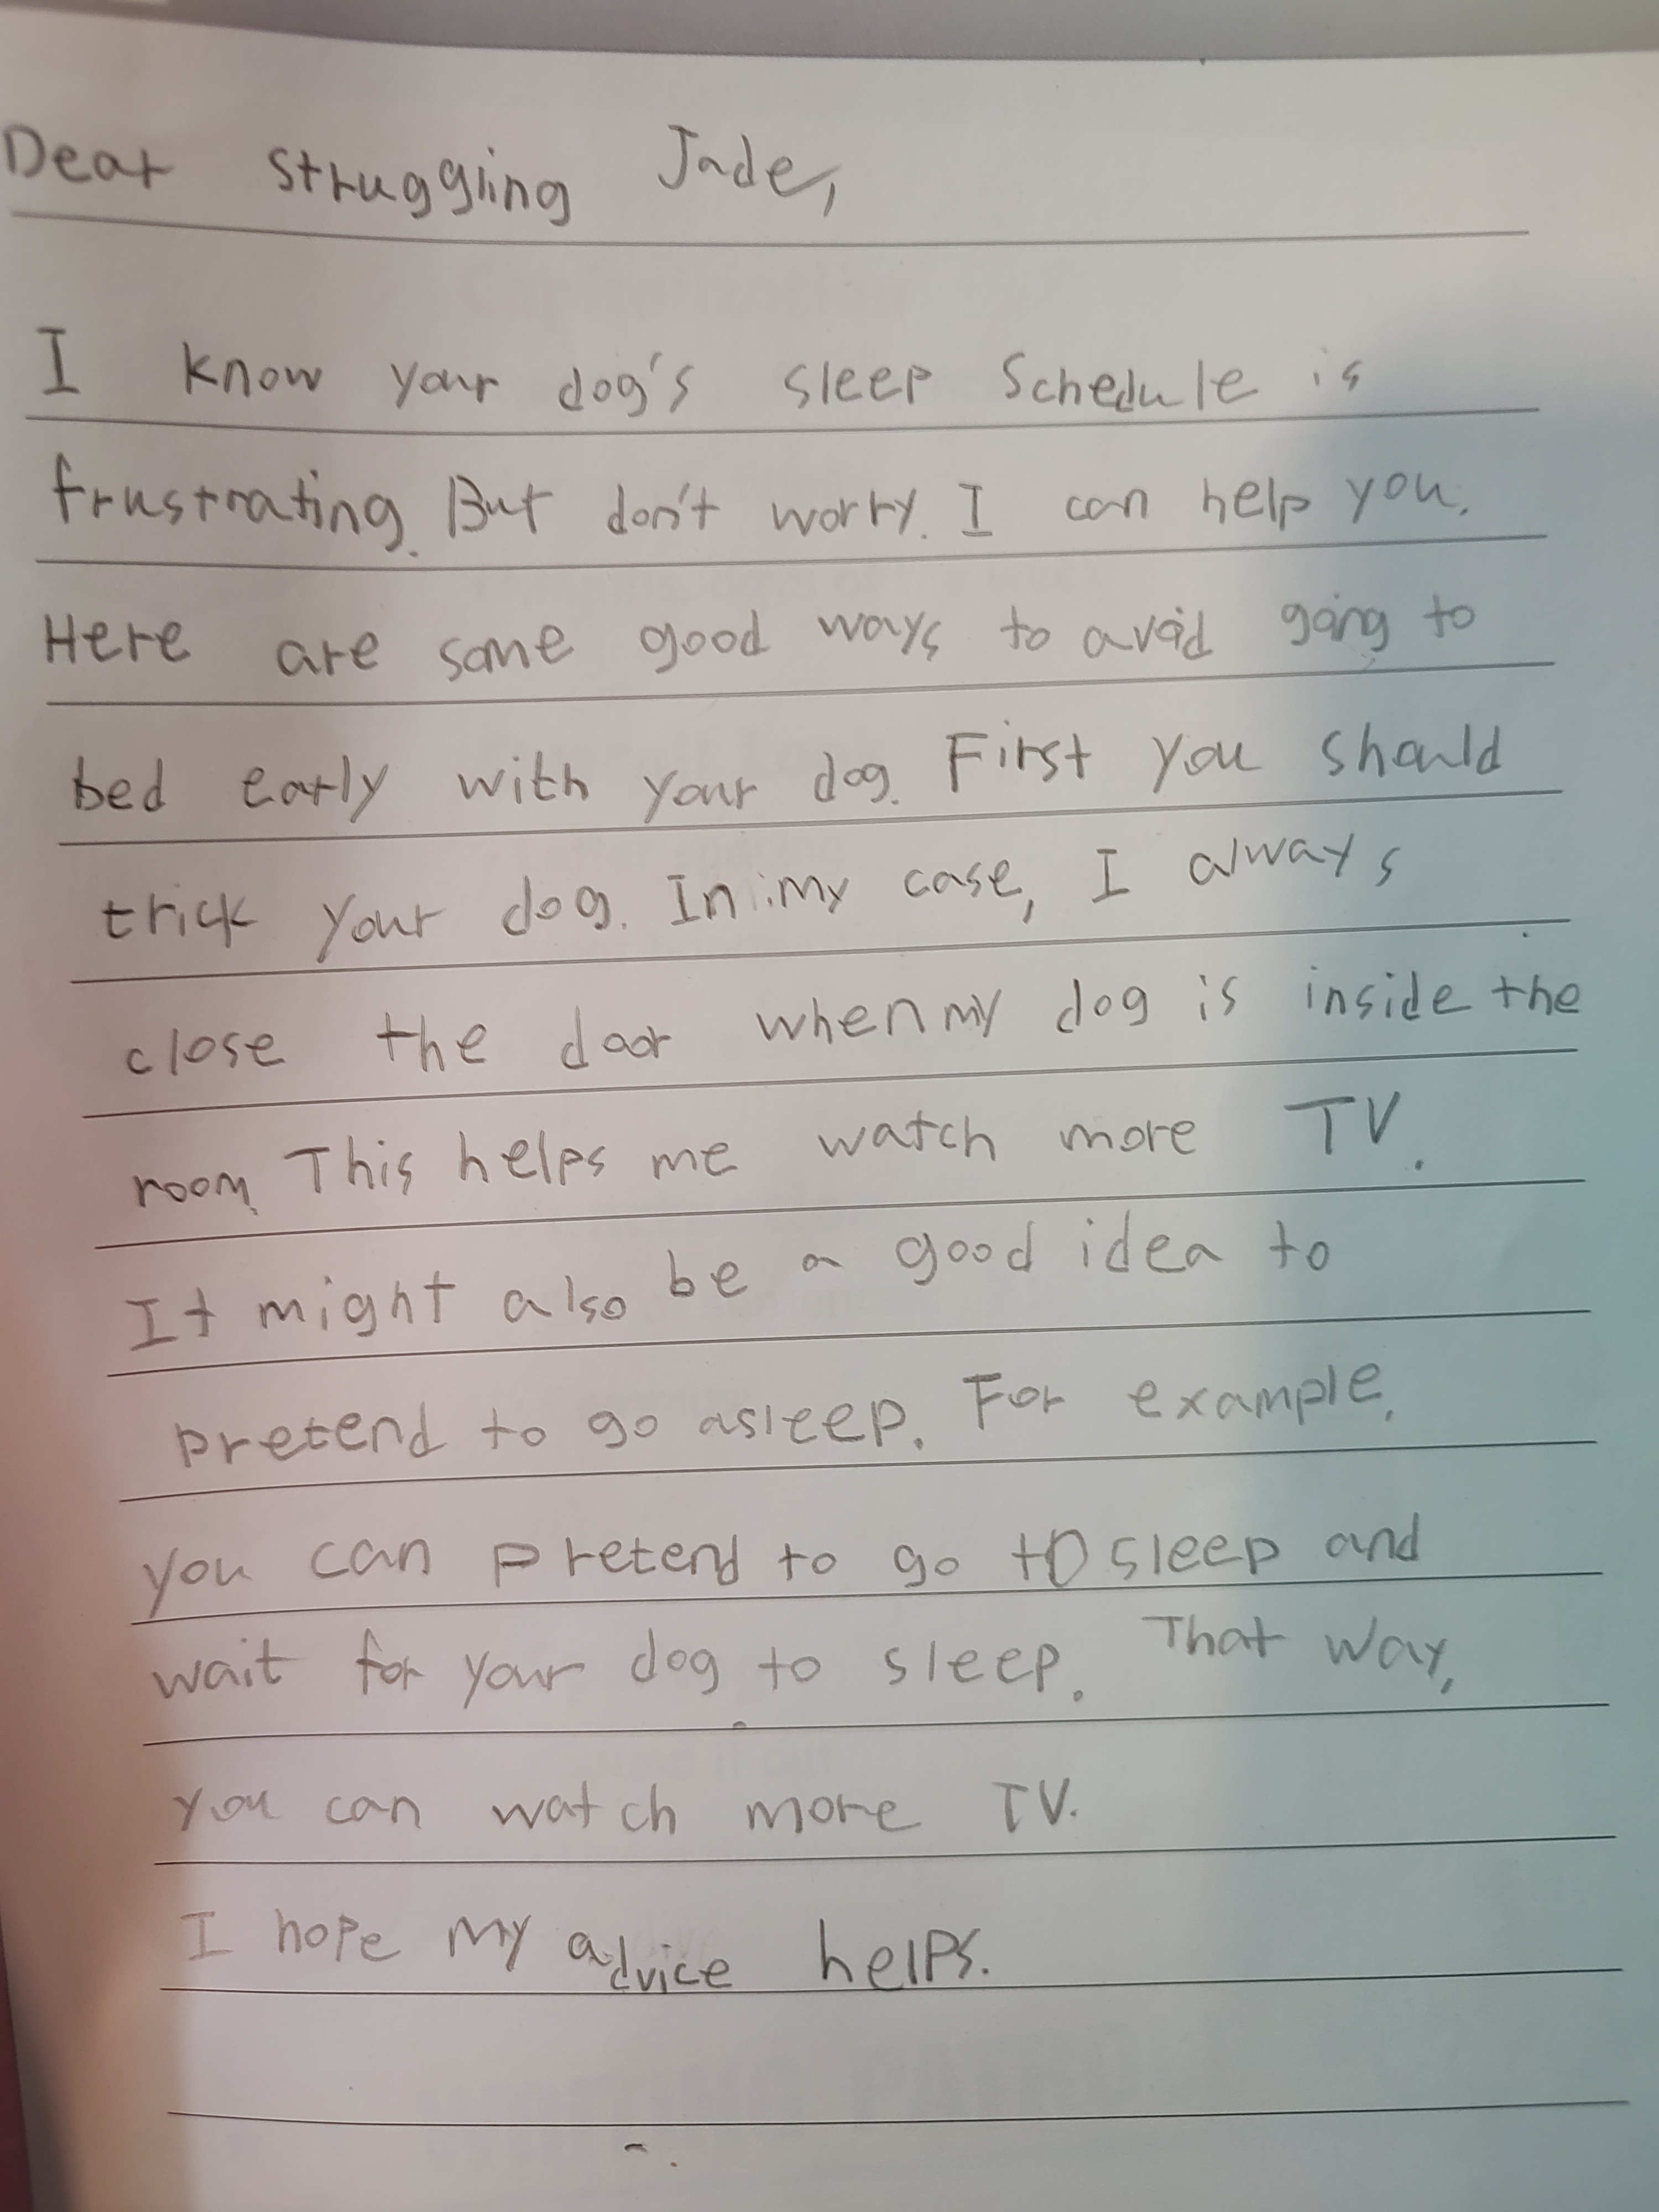 Dear struggling Jade,
I know your dog's sleep Schedule is
frustrating. But don't worry. I can help you.
Here are some good ways to avoid going to
bed early with your dog. First you should
trick your dog. In my case, I always
close the door when my dog is inside the
room. This helps me watch more TV.
It might also be a good idea to
pretend to go asleep. For example,
you can pretend to go to sleep and
wait for your dog to sleep. That way,
you can watch more TV.
I hope my advice helps.